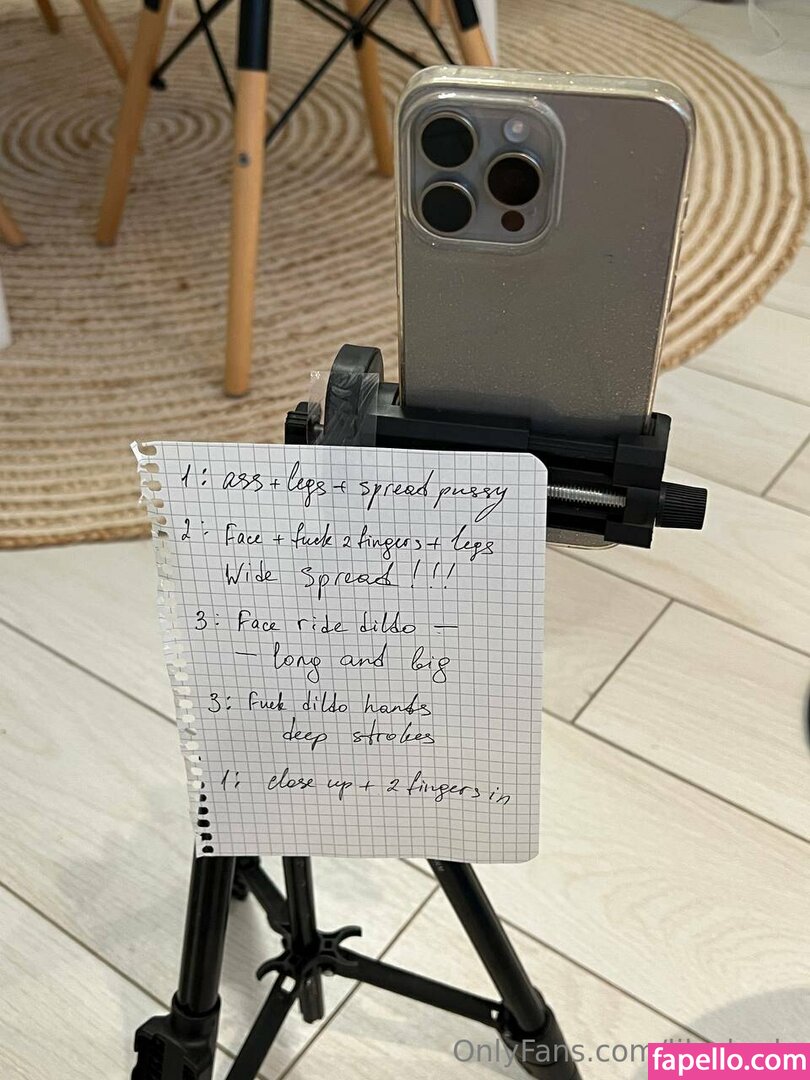 1: ass + legs + spread pussy
2: Face + fuck 2 fingers + legs
Wide Spread!!!
3: Face ride dildo —
— long and big
3: Fuck dildo hands
deep strokes
1: close up + 2 fingers in
fapello.com